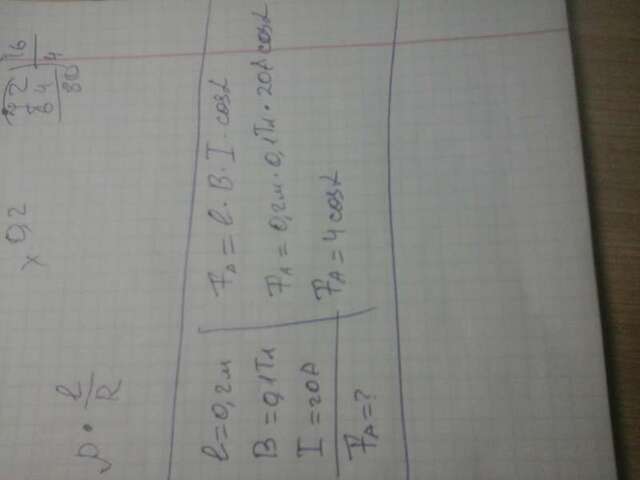 ρ · l/R
x 0,2
l = 0,2м
B = 0,1Тл
I = 20А
F_A = ?
F_A = l · B · I · cosα
F_A = 0,2м · 0,1Тл · 20А cosα
F_A = 4 cosα